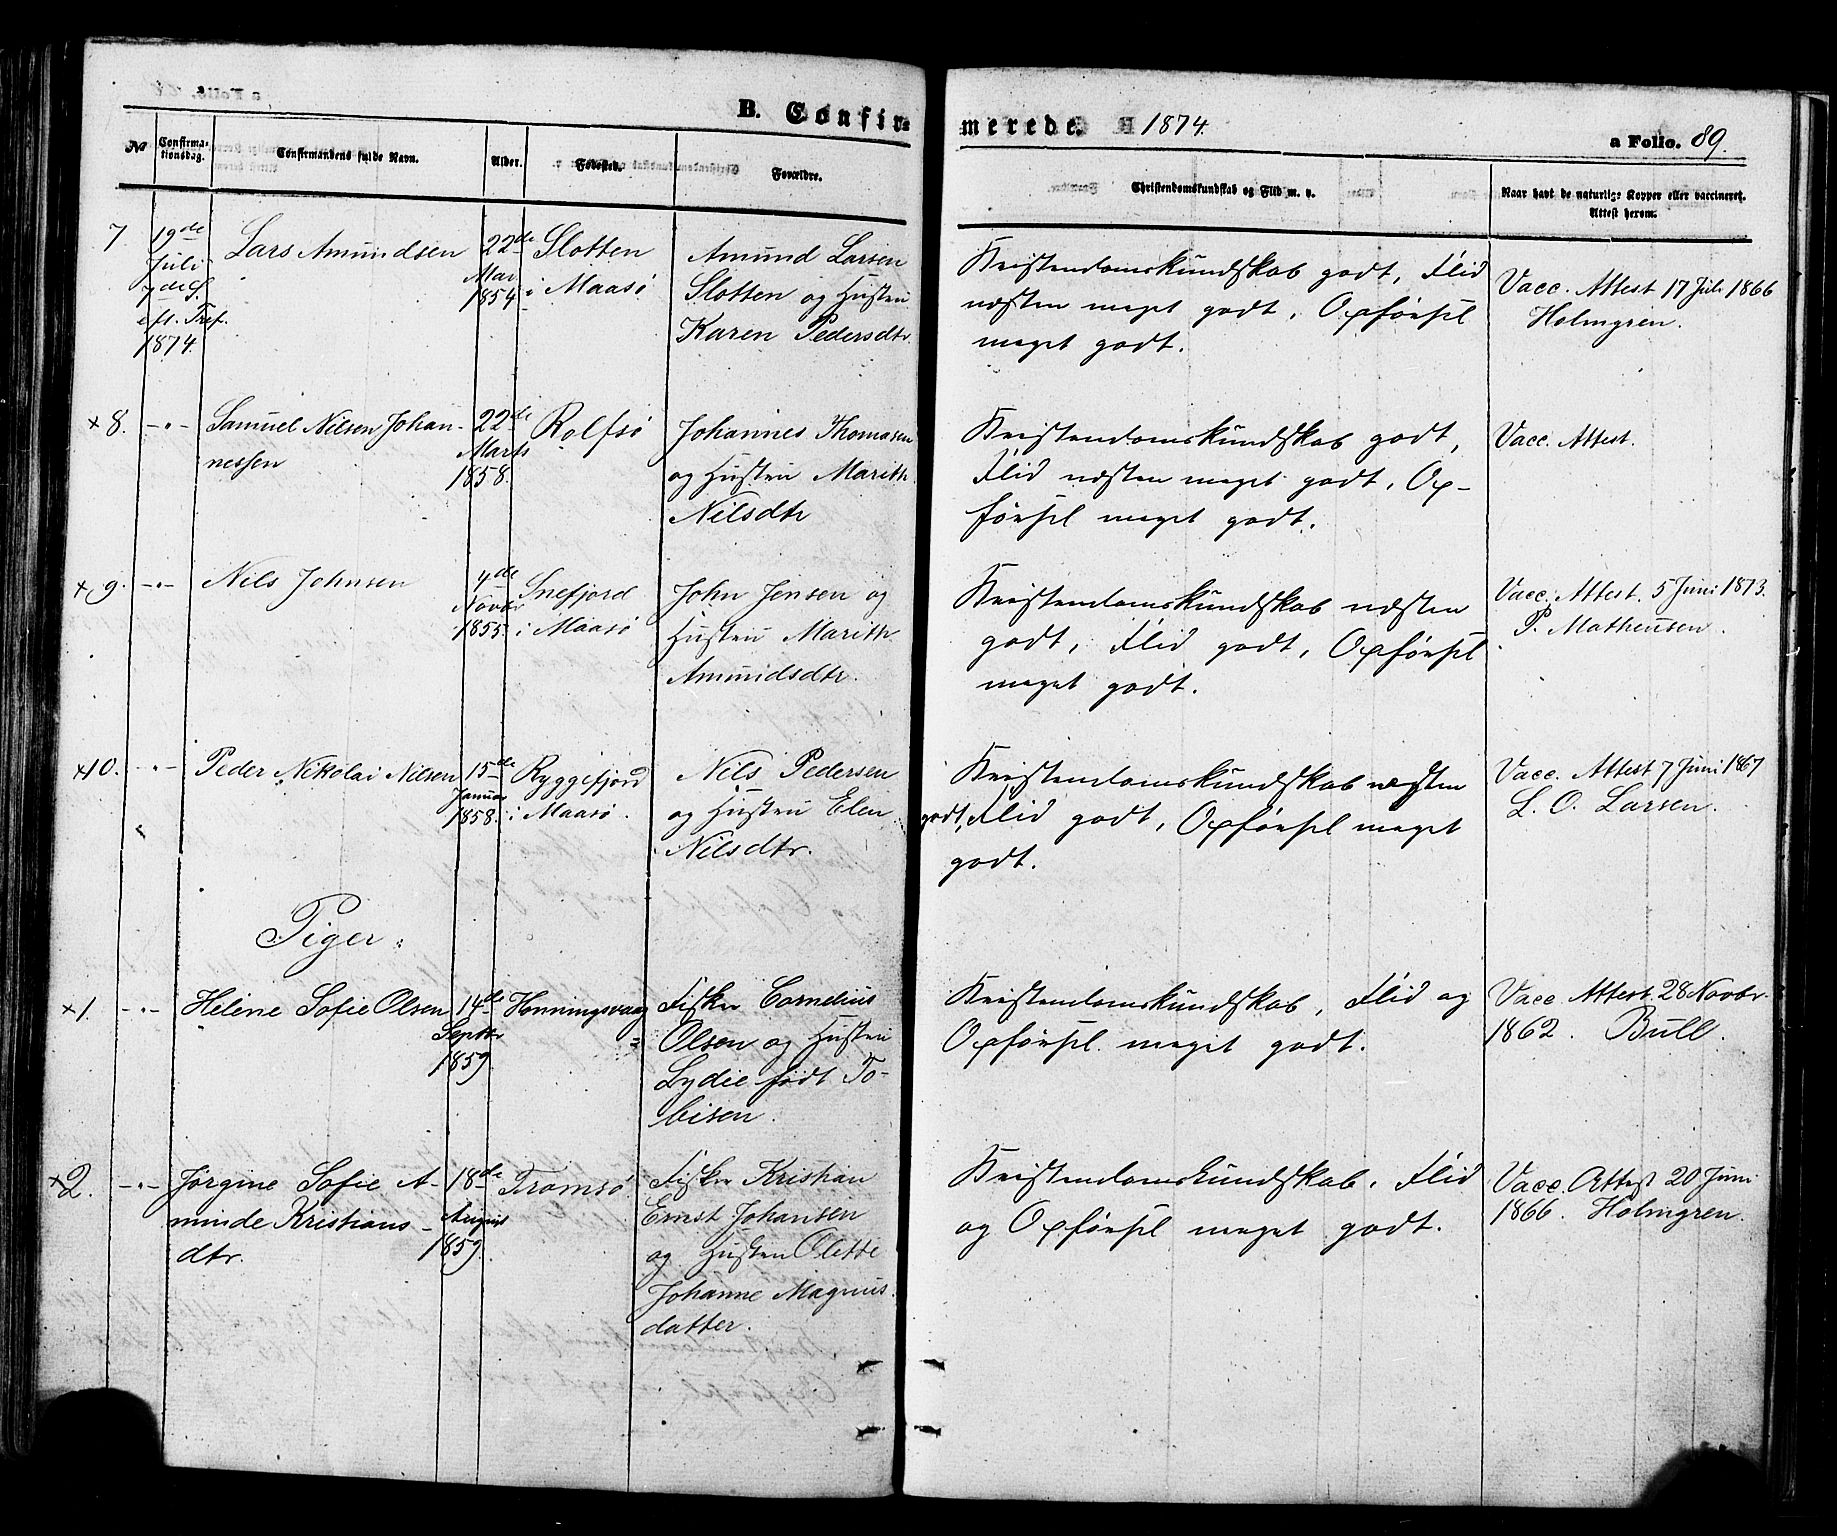 B. Confir-
merede. 1874.
a Folio. 89.
No
Confirma-
tionsdag.
Confirmandens fulde Navn.
Alder.
Fødested.
Forældre.
Christendomskundskab og Flid m. v.
Naar havt de naturlige Kopper eller vaccineret.
Attest herom.
7
19de
Juli
7de S.
eft. Tref.
1874.
Lars Amundsen
22de
Mar
1854
Slotten
i Maasø
Amund Larsen
Slotten og Hustru
Karen Pedersdtr.
Kristendomskundskab godt, Flid
næsten meget godt, Opførsel
meget godt.
Vacc. Attest 17 Juli 1866
Holmgren.
×8.
-"-
Samuel Nilsen Johan-
nessen
22de
Marts
1858.
Rolfsø
Johannes Thomasen
og Hustru Marith
Nilsdtr
Kristendomskundskab godt,
Flid næsten meget godt, Op-
førsel meget godt.
Vacc. Attest.
×9.
-"-
Nils Johnsen
4de
Novbr
1855
Snefjord
i Maasø
John Jensen og
Hustru Marith
Amundsdtr.
Kristendomskundskab næsten
godt, Flid godt, Opførsel
meget godt.
Vacc. Attest. 5 Juni 1873.
P. Matheusen.
×10.
-"-
Peder Nikolai Nilsen
15de
Januar
1858.
Ryggefjord
i Maasø.
Nils Pedersen
og Hustru Elen
Nilsdtr.
Kristendomskundskab næsten
godt, Flid godt, Opførsel meget
godt.
Vacc. Attest 7 Juni 1867
L. O. Larsen.
Piger.
×1.
-"-
Helene Sofie Olsen
14de
Septbr
1859.
Honningsvaag
Fisker Cornelius
Olsen og Hustru
Lydie født To-
bisen.
Kristendomskundskab, Flid og
Opførsel meget godt.
Vacc. Attest. 28 Novbr.
1862. Bull.
×2.
-"-
Jørgine Sofie A-
minde Kristians-
dtr.
18de
August
1859.
Tromsø
Fisker Kristian
Ernst Johansen
og Hustru Olette
Johanne Magnus-
datter.
Kristendomskundskab, Flid
og Opførsel meget godt.
Vacc. Attest 20 Juni
1866. Holmgren.